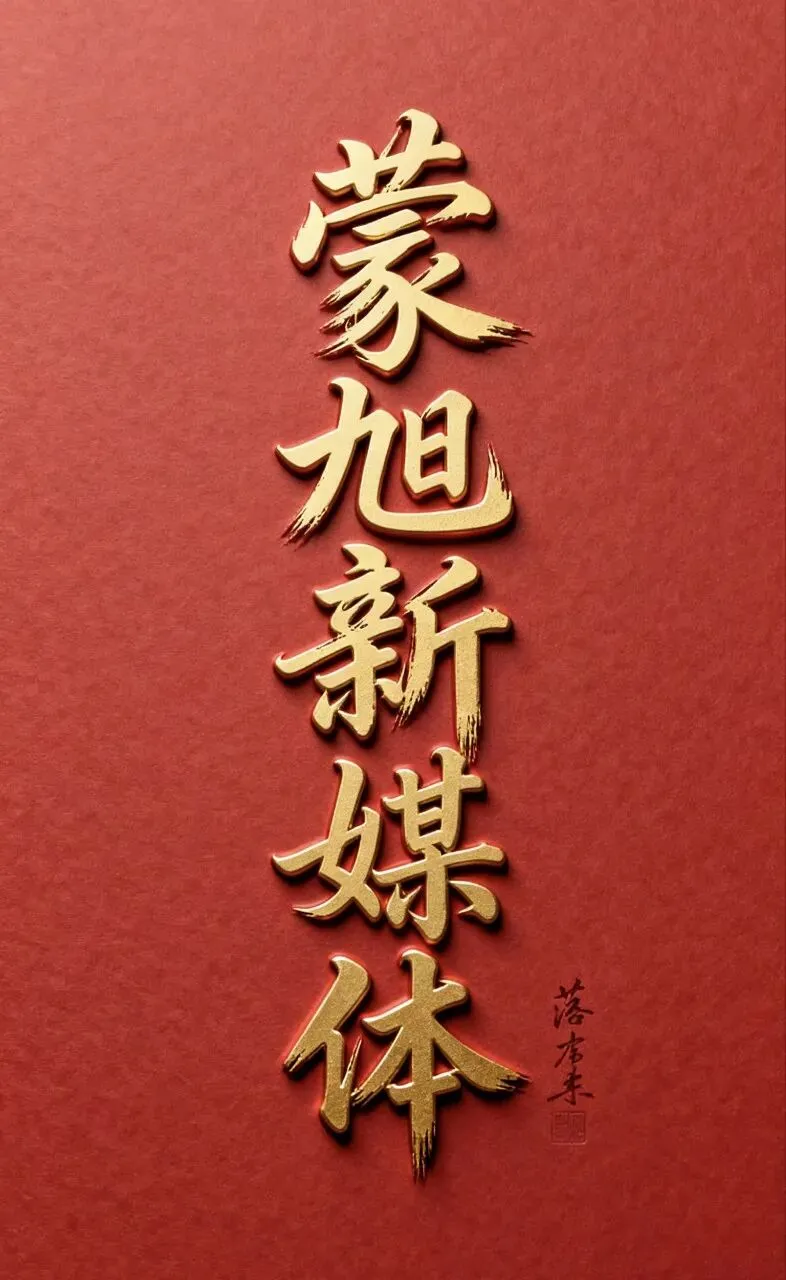 蒙旭新媒体